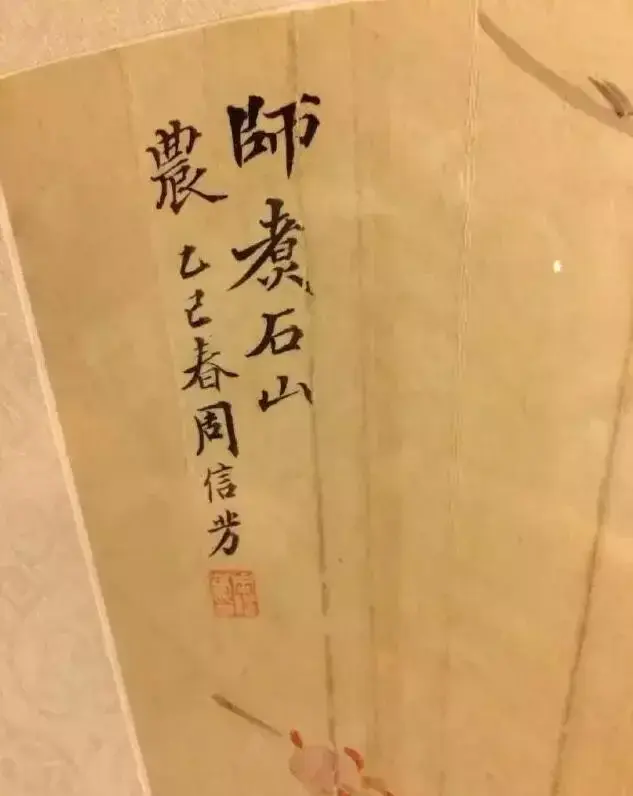 師煮石山
農 乙巳春周信芳